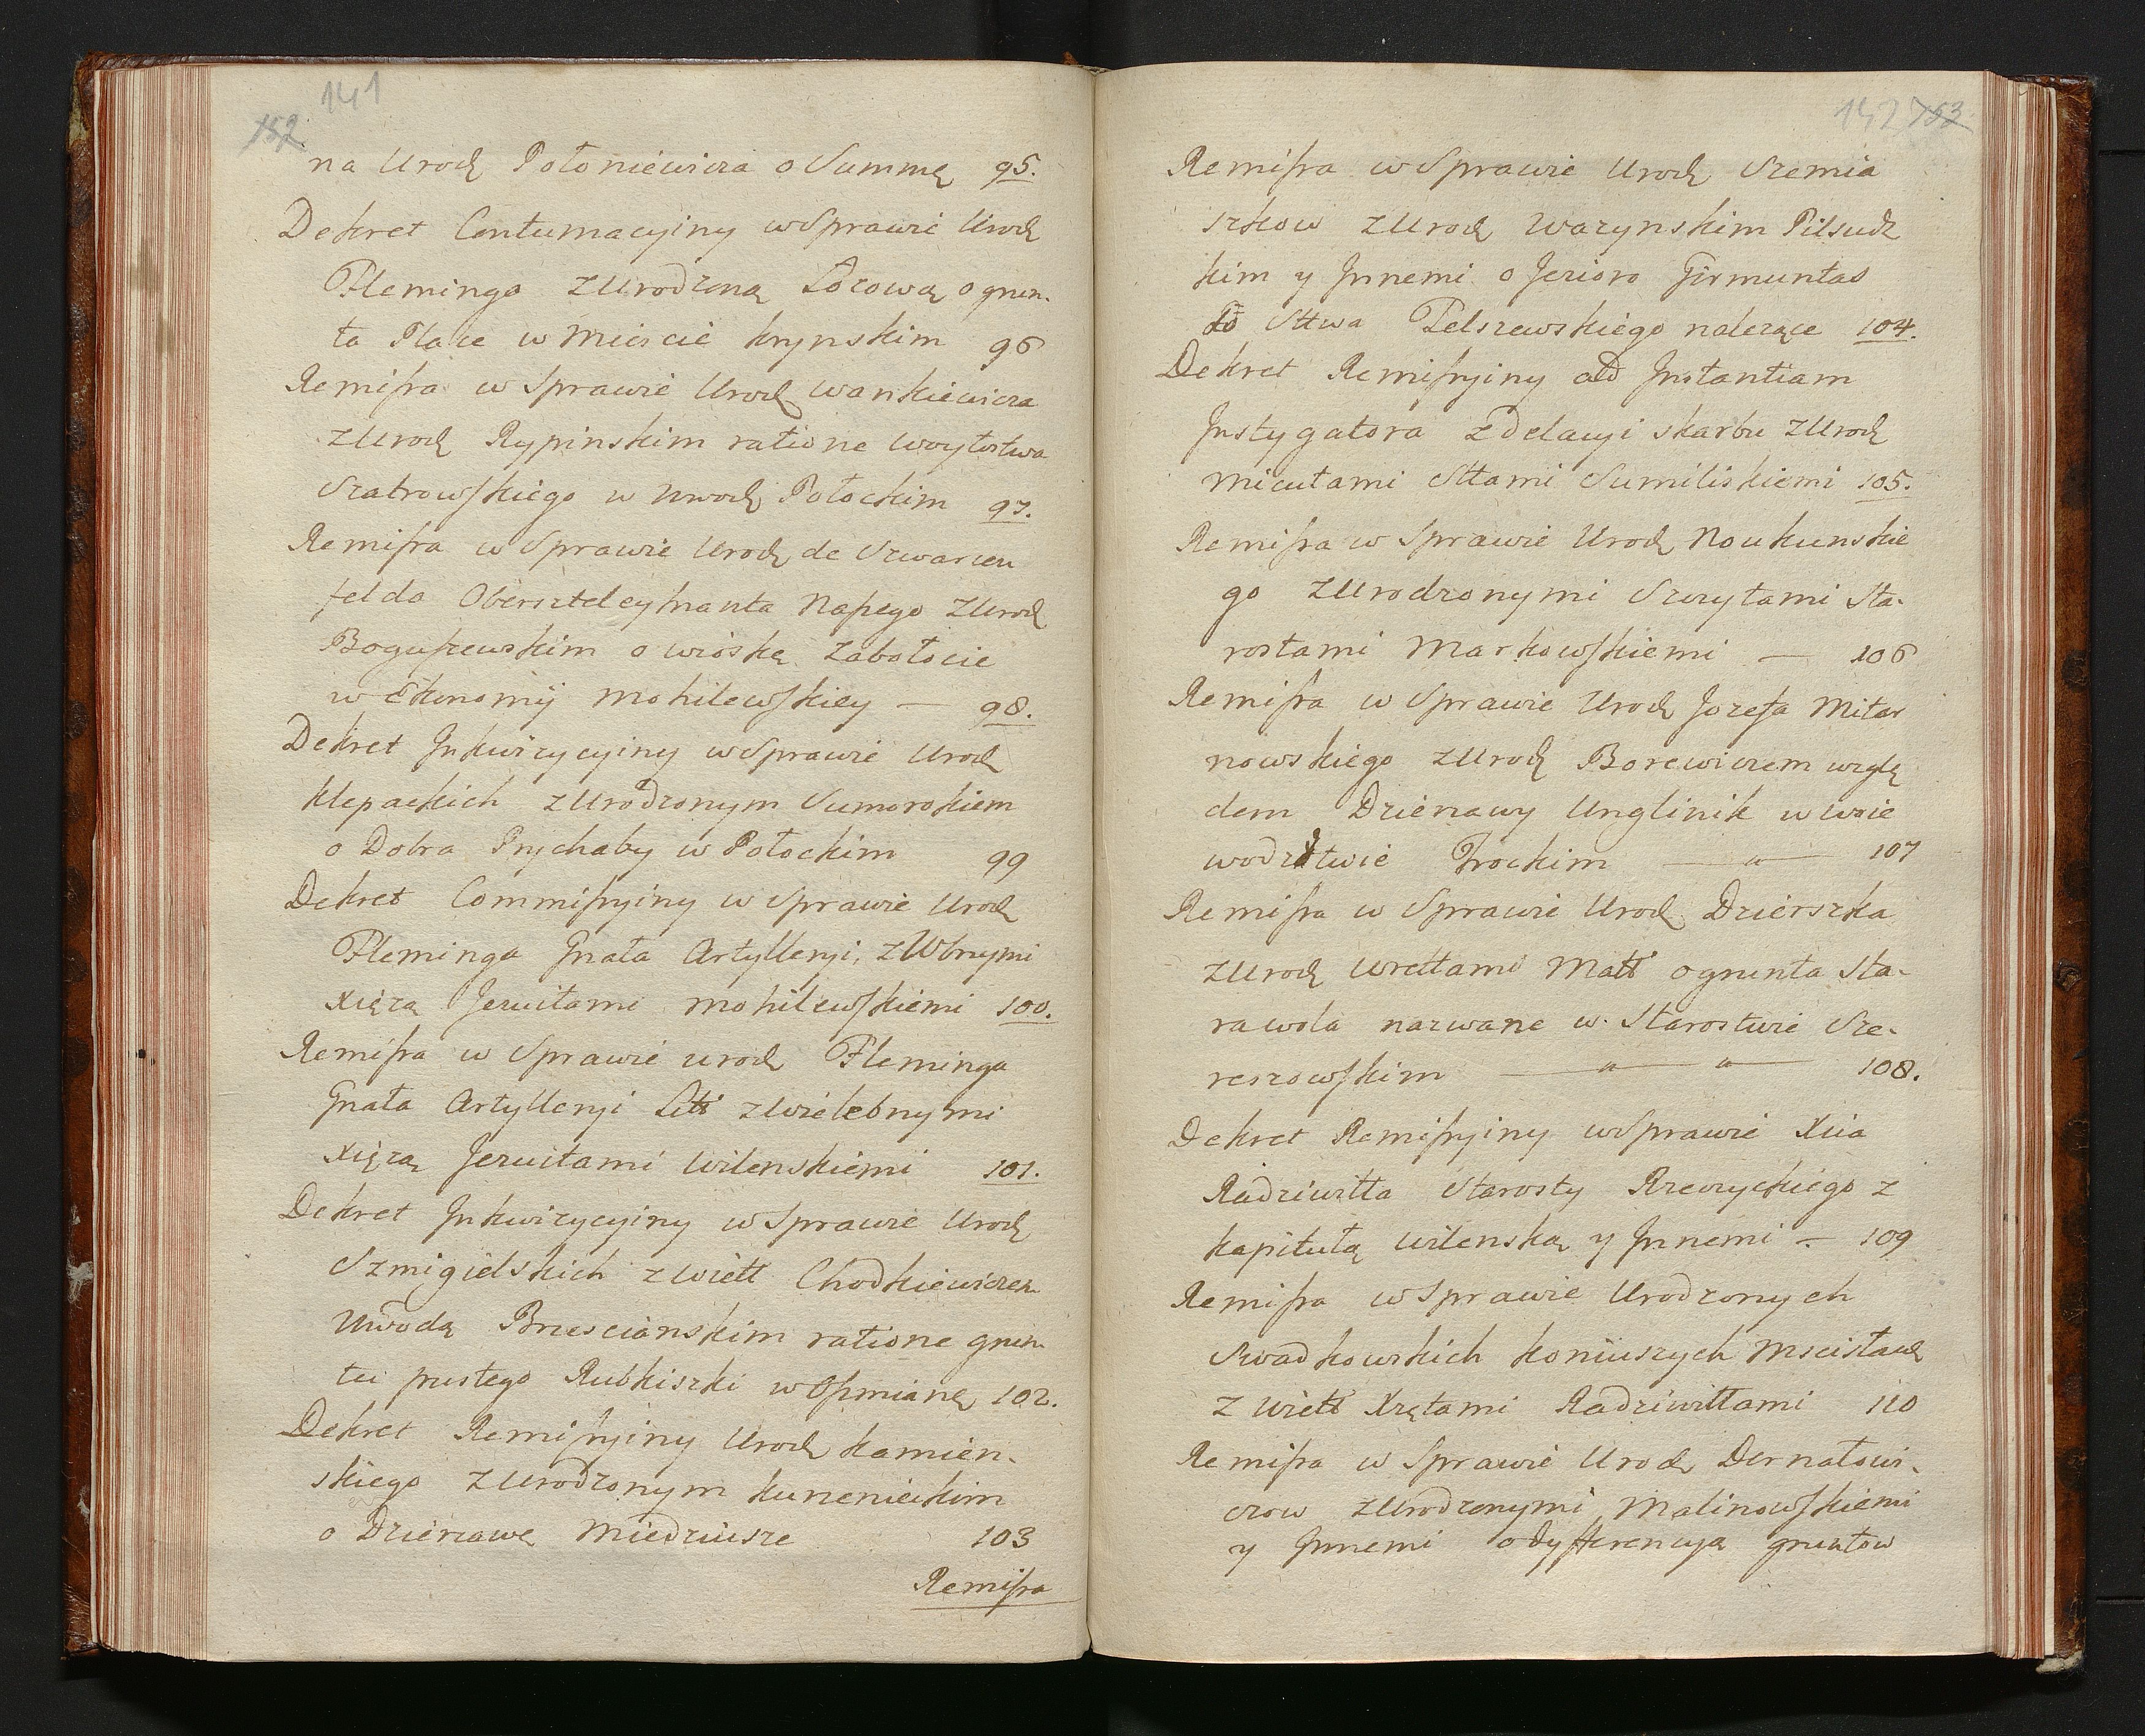 141
152
na Urodz Połoniewicza o Summę 95.
Dekret Contumacyiny w Sprawie Urodz
Fleminga z Urodzoną Łozową o grun-
ta Place w Mieście krynskim 96
Remissa w Sprawie Urodz Wankiewicza
z Urodz Rypinskim ratione Woytostwa
Szatrowskiego w Uwodz Połockim 97.
Remissa w Sprawie Urodz de Szwarcen
felda Oberszteleytnanta Naszego z Urodz
Boguszewskim o wioskę Zabołocie
w Ekonomij Mohilewskiey — 98.
Dekret Inkwizycyiny w Sprawie Urodz
Klepackich z Urodzonym Sumorokiem
o Dobra Prychaby w Połockim 99
Dekret Commissyiny w Sprawie Urodz
Fleminga Gnała Artylleryi, z Wbnymi
Xiężą Jezuitami Mohilewskiemi 100.
Remissa w Sprawie urodz Fleminga
Gnała Artylleryi Litt z Wielebnymi
Xiężą Jezuitami Wilenskiemi 101.
Dekret Inkwizycyiny w Sprawie Urodz
Szmigielskich z Wiell Chodkiewiczem
Uwodą Brzescianskim ratione grun
tu pustego Rubkiszki w Oszmianę 102.
Dekret Remissyiny Urodz kamien-
skiego z Urodzonym kunenickim
o Dzierzawę Miedziusze 103
Remissa
142 153
Remissa w Sprawie Urodz Szemia
szkow z Urodz Wazynskim Piłsudz
kim y Innemi o Jezioro Girmuntas
do Sttwa Telszewskiego nalezące 104.
Dekret Remissyiny ad Instantiam
Instygatora z delacyi skarbu z Urodz
Micutami Sttami Sumiliskiemi 105.
Remissa w Sprawie Urodz Noukunskie
go z Urodzonymi Szczytami Sta-
rostami Markowskiemi — 106
Remissa w Sprawie Urodz Jozefa Mitar
nowskiego z Urodz Borewiczem wzglę
dem Dzierzawy Unglinik w Woie
wodztwie Trockim — " — 107
Remissa w Sprawie Urodz Dzierszka
z Urodz Wrettami Matt o grunta Sta-
rawola nazwane w Starostwie Sze-
reszowskim — " — " — 108.
Dekret Remissyiny w Sprawie Xcia
Radziwiłła Starosty Rzeczyckiego z
kapitułą Wilenską y Innemi — 109
Remissa w Sprawie Urodzonych
Swadkowskich koniuszych Mscisławz
z Wiell Xzętami Radziwiłłami 110
Remissa w Sprawie Urodz Dernałowi-
czow z Urodzonymi Malinowskiemi
y Innemi o dyfferencyą gruntow